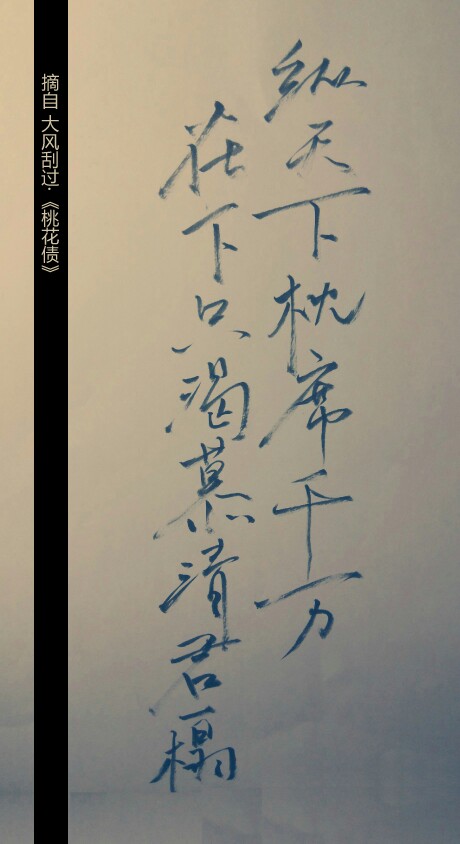 纵天下枕席千万
茌下只渴慕清君一榻
摘自 大风刮过·《桃花债》